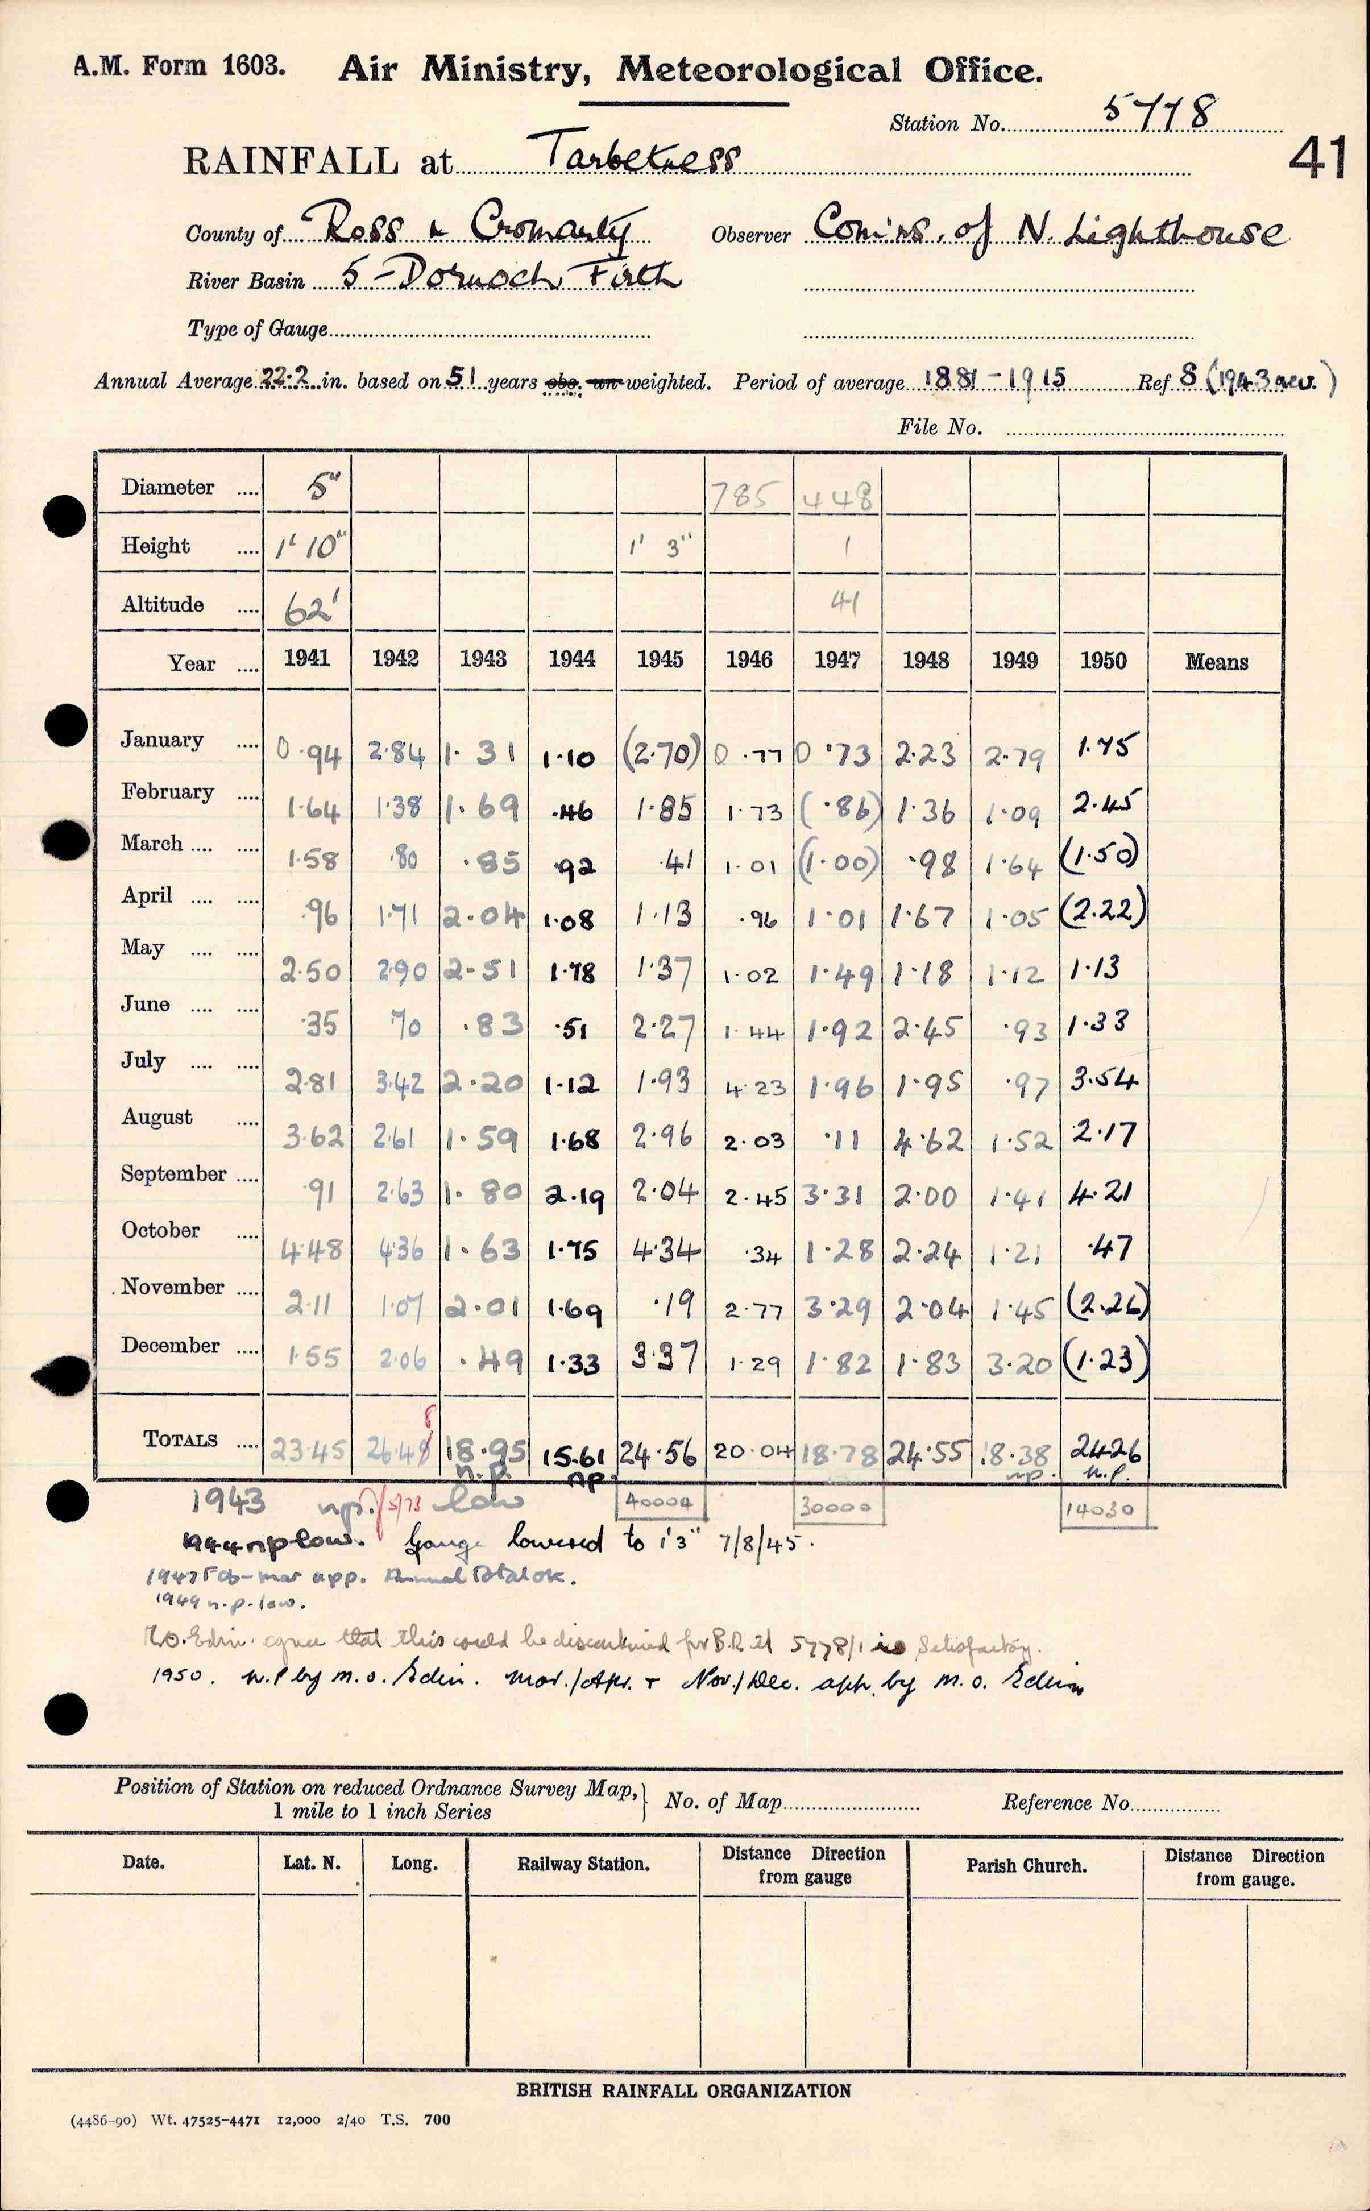 A.M. Form 1603. Air Ministry, Meteorological Office.
Station No. 5778
41
RAINFALL at Tarbetness
County of Ross & Cromarty Observer Comms. of N. Lighthouse
River Basin 5 - Dornoch Firth
Type of Gauge
Annual Average 22.2 in. based on 51 years obs. un-weighted. Period of average 1881-1915 Ref 8 (1943 rev.)
File No.
Diameter 5" 785 448
Height 1' 10" 1' 3" 1
Altitude 62' 41
Year 1941 1942 1943 1944 1945 1946 1947 1948 1949 1950 Means
January 0.94 2.84 1.31 1.10 (2.70) 0.77 0.73 2.23 2.79 1.75
February 1.64 1.38 1.69 .46 1.85 1.73 (.86) 1.36 1.09 2.45
March 1.58 .80 .85 .92 .41 1.01 (1.00) .98 1.64 (1.50)
April .96 1.71 2.04 1.08 1.13 .96 1.01 1.67 1.05 (2.22)
May 2.50 2.90 2.51 1.78 1.37 1.02 1.49 1.18 1.12 1.13
June .35 70 .83 .51 2.27 1.44 1.92 2.45 .93 1.33
July 2.81 3.42 2.20 1.12 1.93 4.23 1.96 1.95 .97 3.54
August 3.62 2.61 1.59 1.68 2.96 2.03 .11 4.62 1.52 2.17
September .91 2.63 1.80 2.19 2.04 2.45 3.31 2.00 1.41 4.21
October 4.48 4.36 1.63 1.75 4.34 .34 1.28 2.24 1.21 .47
November 2.11 1.07 2.01 1.69 .19 2.77 3.29 2.04 1.45 (2.26)
December 1.55 2.06 .49 1.33 3.37 1.29 1.82 1.83 3.20 (1.23)
8
TOTALS 23.45 26.48 18.95 15.61 24.56 20.04 18.78 24.55 18.38 24.26
n.p. np. np. n.p.
1943 np. 5/73 low 40004 30000 14030
1944 np low. Gauge lowered to 1'3" 7/8/45.
1947 Feb-mar app. Annual Total ok.
1949 n.p. low.
M.O. Edin. agree that this could be discontinued for B.R. if 5778/1 is satisfactory.
1950. n.p by M.O. Edin. Mar./Apr. + Nov./Dec. app. by M.O. Edin
Position of Station on reduced Ordnance Survey Map, 1 mile to 1 inch Series } No. of Map Reference No.
Date. Lat. N. Long. Railway Station. Distance Direction from gauge Parish Church. Distance Direction from gauge.
BRITISH RAINFALL ORGANIZATION
(4486-90) Wt. 47525-4471 12,000 2/40 T.S. 700